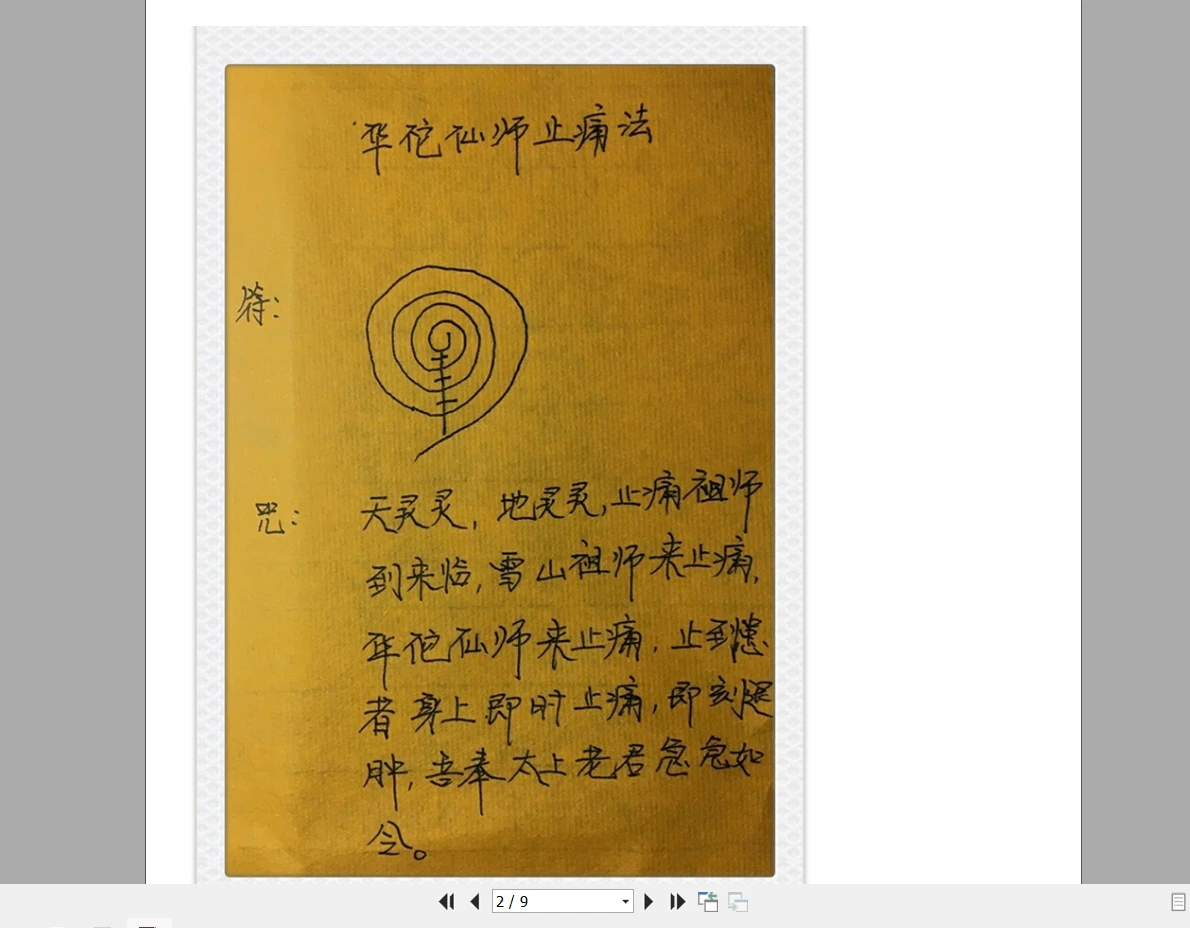 华佗仙师止痛法
符：
咒：
天灵灵，地灵灵，止痛祖师
到来临，雪山祖师来止痛，
华佗仙师来止痛，止到患
者身上即时止痛，即刻退
肿，吾奉太上老君急急如
令。
2 / 9